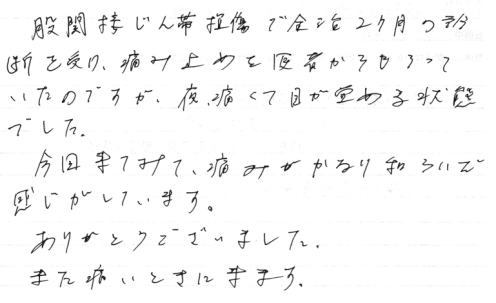 股関接じん帯損傷で全治2ヶ月の診
断を受け、痛み止めを医者からもらって
いたのですが、夜、痛くて目が覚める状態
でした。
今回来てみて、痛みがかなり和らいで
感じがしています。
ありがとうございました。
また痛いときに来ます。